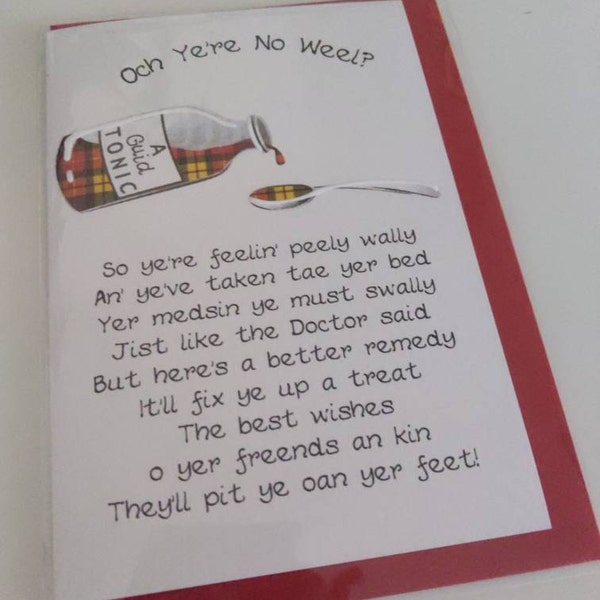 Och Ye're No Weel?
A
Guid
TONIC
So ye're feelin' peely wally
An' ye've taken tae yer bed
Yer medsin ye must swally
Jist like the Doctor said
But here's a better remedy
It'll fix ye up a treat
The best wishes
o yer freends an kin
They'll pit ye oan yer feet!